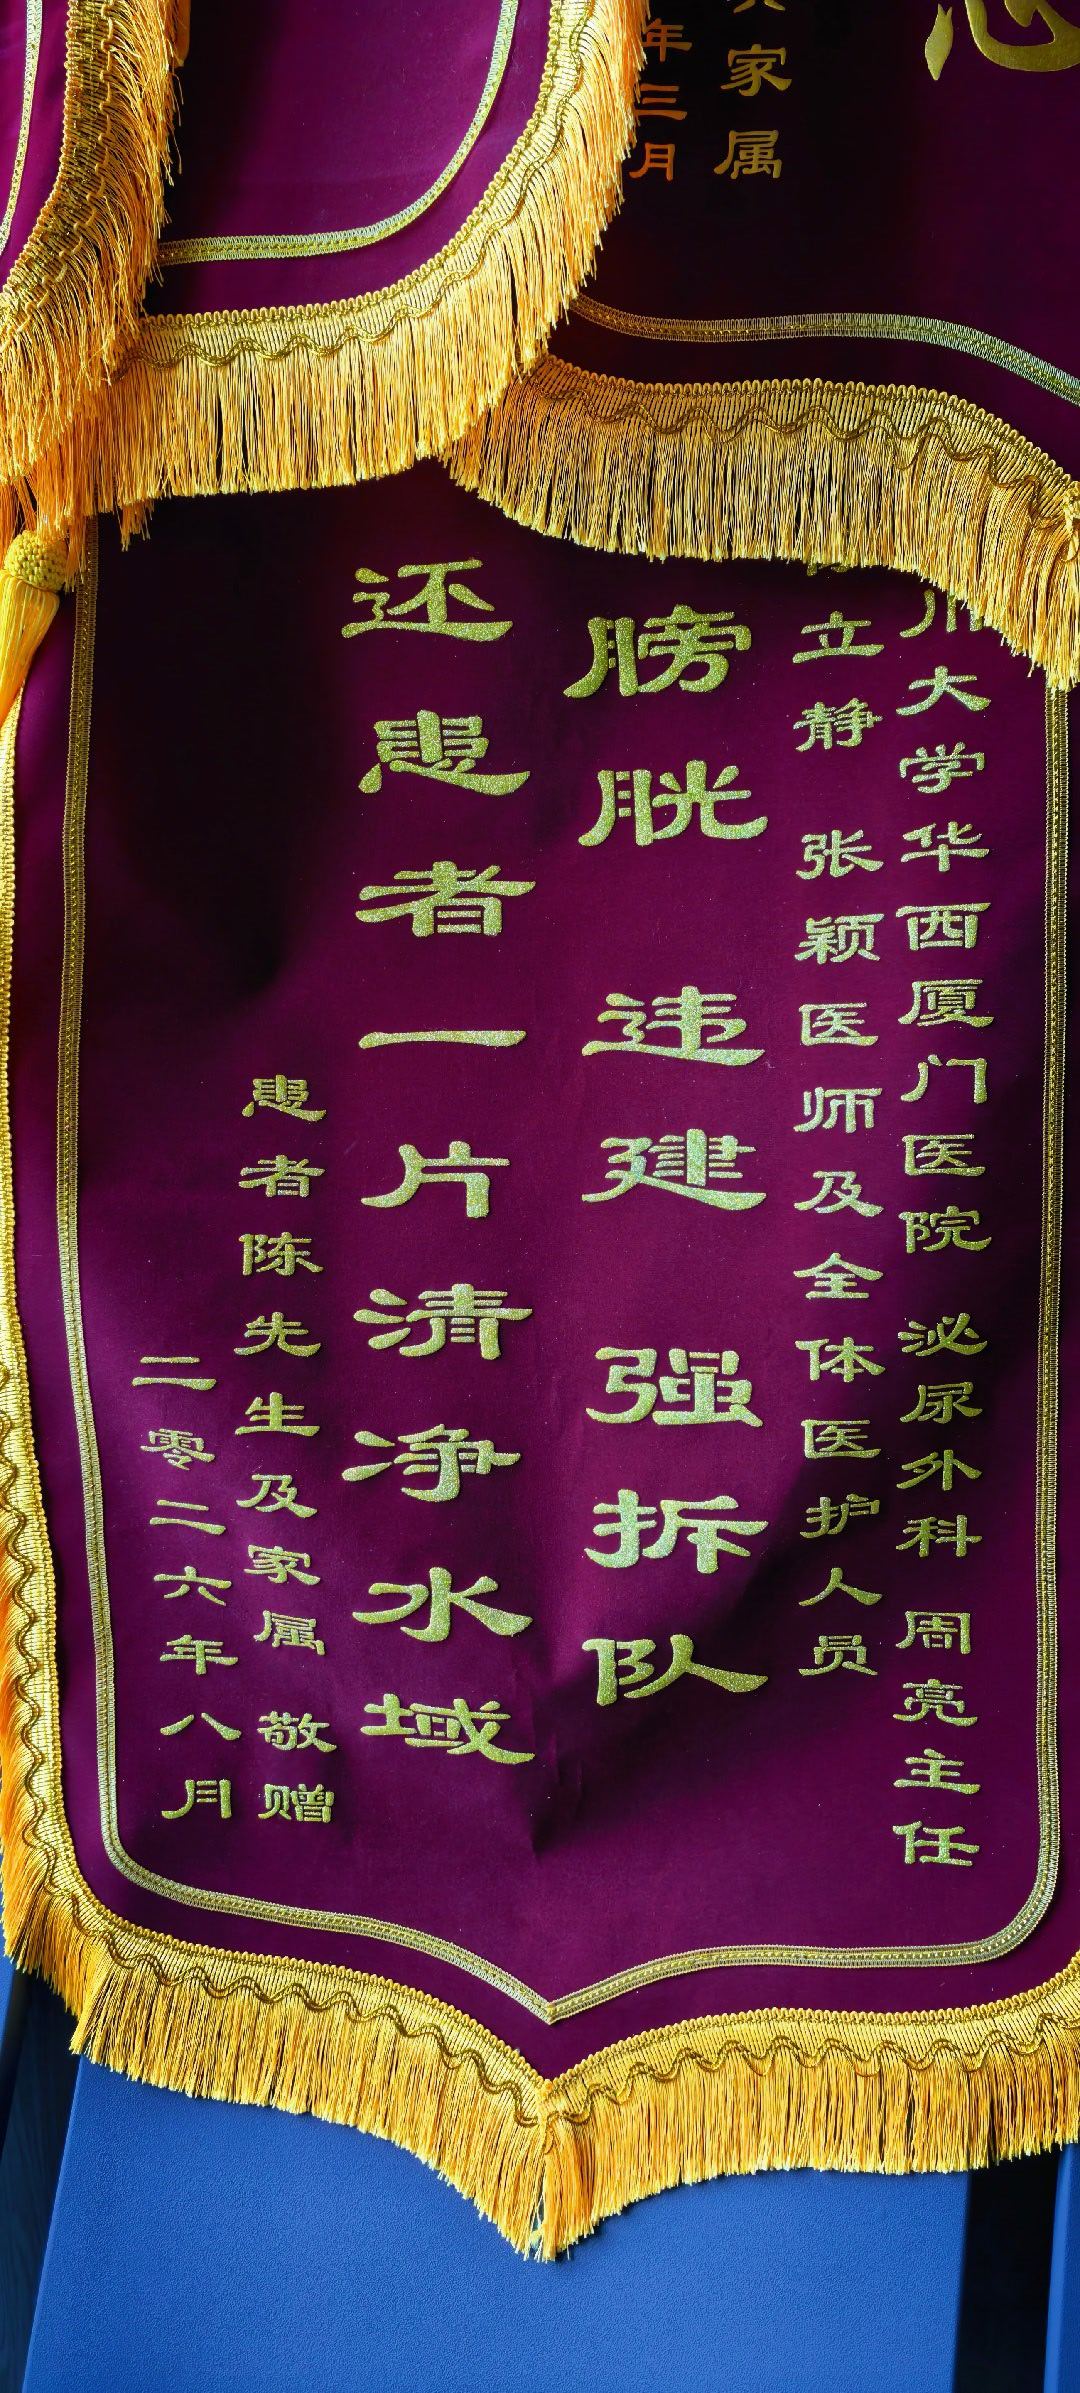 家属
年三月
川大学华西厦门医院 泌尿外科 周亮主任
立静 张颖医师及全体医护人员
膀胱 违建 强拆队
还患者一片清净水域
患者陈先生及家属 敬赠
二零二六年八月